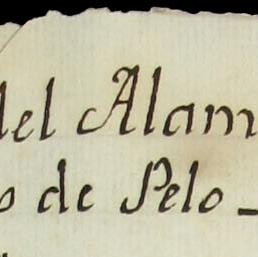 del Alam
o de Pelo -